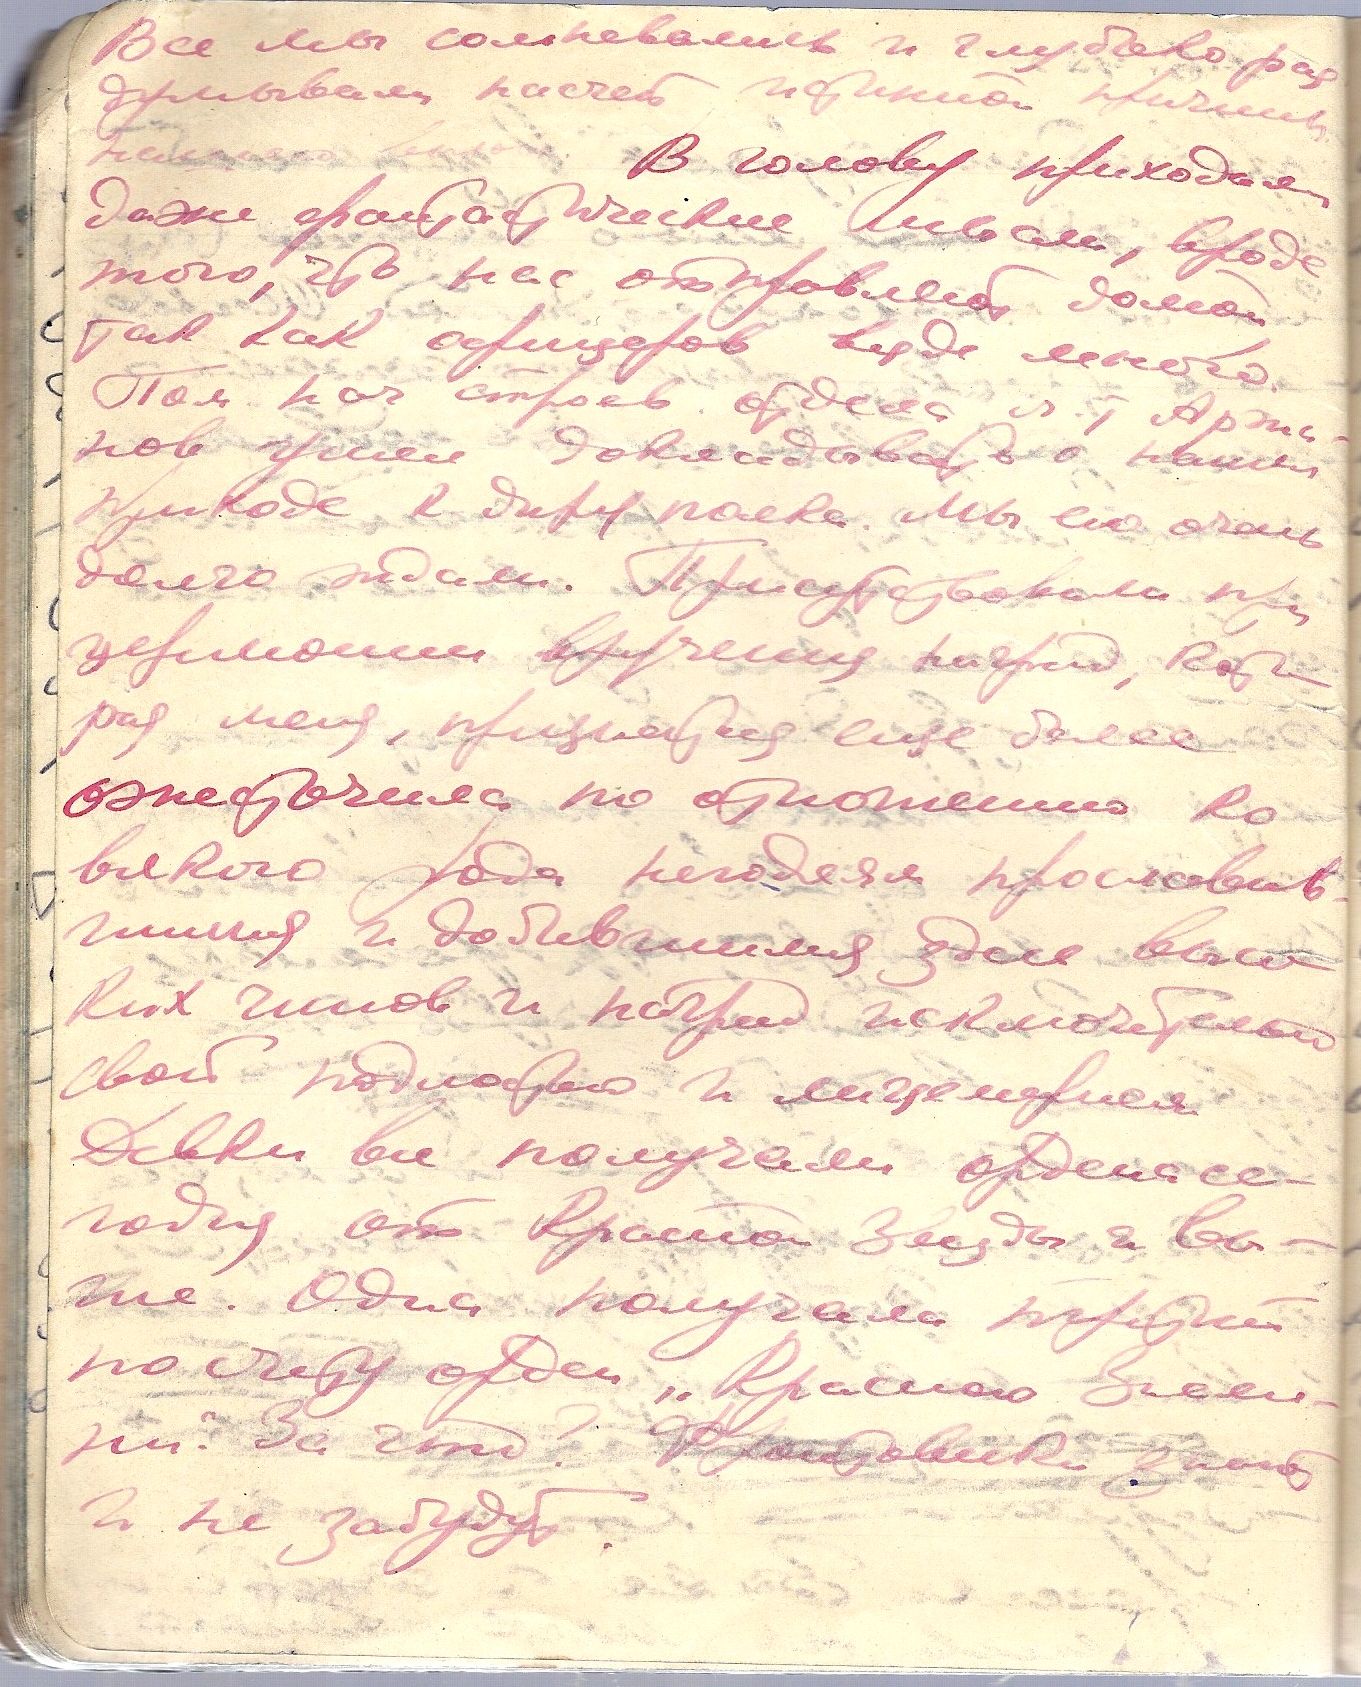 Все мы сомневались и глубоко раз
думывали насчет истинной причины
В голову приходили
даже фантастические мысли, вроде
того, что нас отправляют домой
так как офицеров везде много.
Пом нач строев. отдела л-т Аржа-
нов ушел докладывать о нашем
приходе к-диру полка. Мы его очень
долго ждали. Присутствовали при
церемонии вручения наград, кото
рая меня, признаться еще более
ожесточила по отношению ко
всякого рода негодяям прославив-
шимся и добившимся здесь высо
ких чинов и наград исключительно
своей подлостью и лицемерием
Девки все получали ордена се-
годня от Красной Звезды и вы-
ше. Одна получала третий
по счету орден „Красного Знаме-
ни". За что? Фронтовики знают
и не забудут.